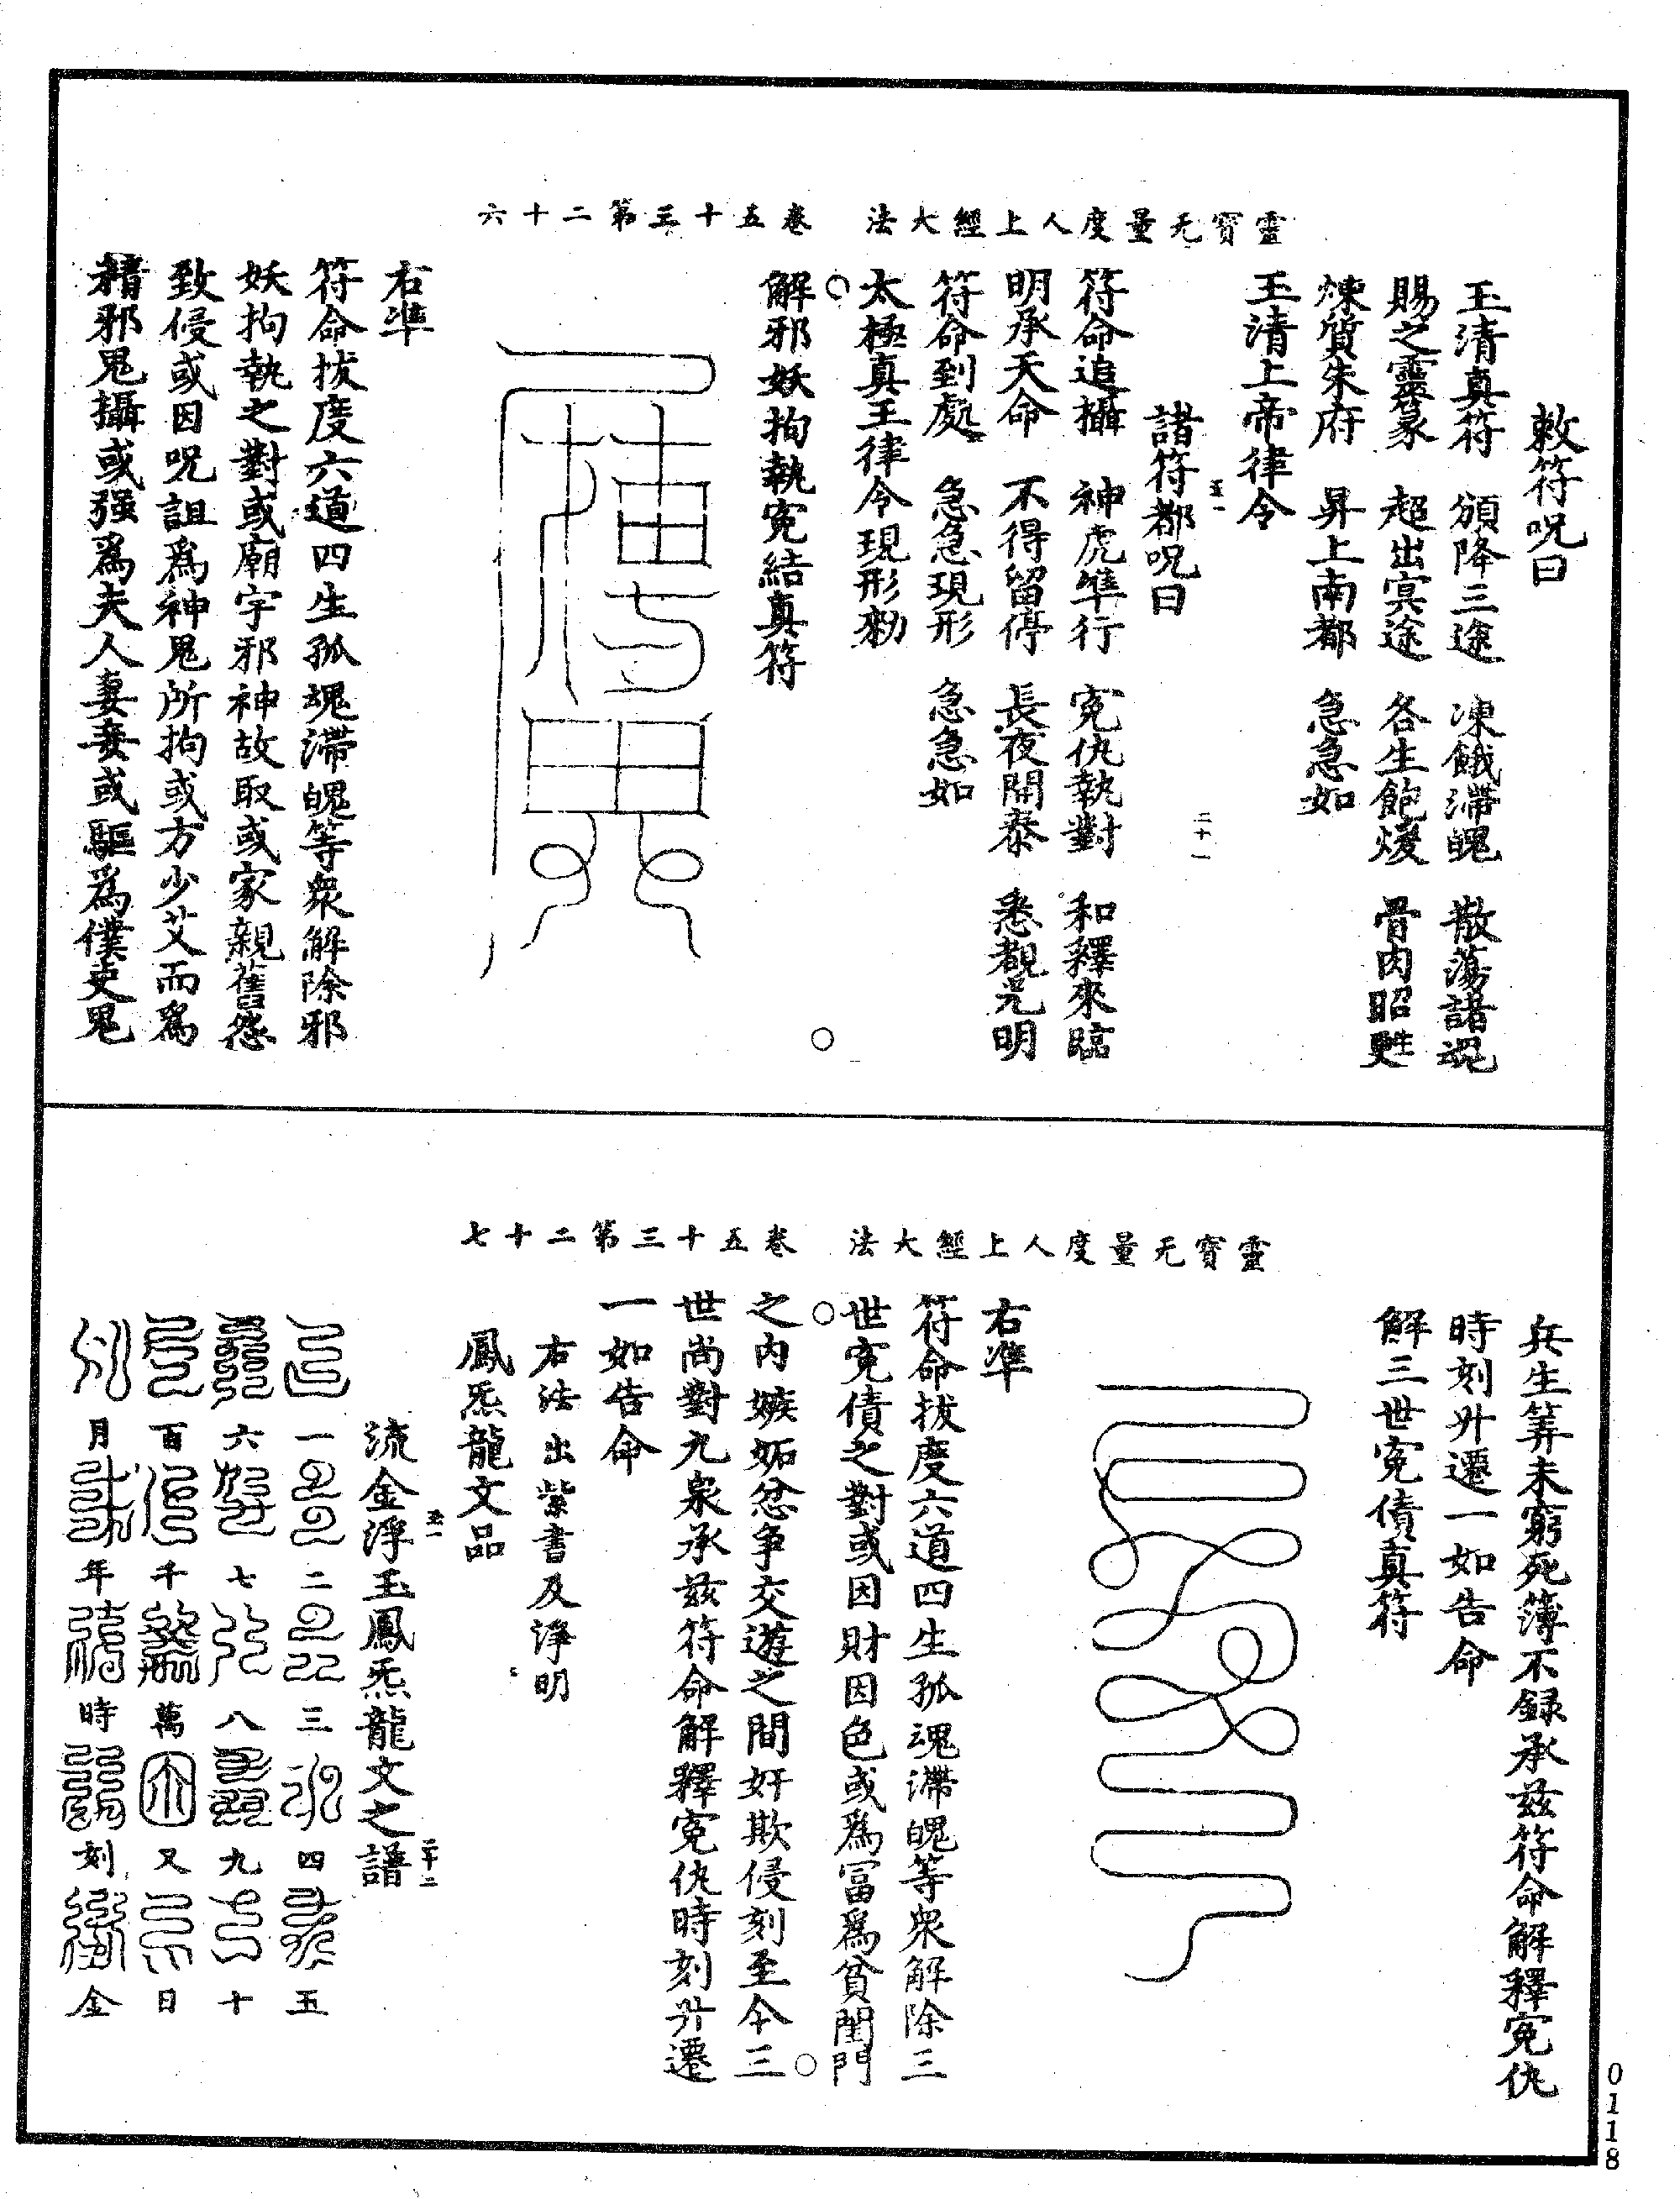 靈寶无量度人上經大法　卷五十三第二十六
敕符呪曰
玉清真符　頒降三途　凍餓滯魄　散蕩諸魂
賜之靈篆　超出冥途　各生飽煖　骨肉昭甦
煉質朱府　昇上南都　急急如
玉清上帝律令
五一　二十一
諸符都呪曰
符命追攝　神虎準行　寃仇執對　和釋來臨
明承天命　不得留停　長夜開泰　悉覩光明
符命到處　急急現形　急急如
太極真王律令現形勑
解邪妖拘執寃結真符
右準
符命拔度六道四生孤魂滯魄等衆解除邪
妖拘執之對或廟宇邪神故取或家親舊怨
致侵或因呪詛爲神鬼所拘或方少艾而爲
精邪鬼攝或强爲夫人妻妾或驅爲僕吏鬼
靈寶无量度人上經大法　卷五十三第二十七
兵生筭未窮死薄不録承兹符命解釋寃仇
時刻升遷一如告命
解三世寃債真符
右準
符命拔度六道四生孤魂滯魄等衆解除三
世寃債之對或因財因色或爲冨爲貧閨門
之内嫉妬忿争交遊之間奸欺侵刻至今三
世尚對九泉承兹符命解釋寃仇時刻升遷
一如告命
右法出紫書及淨明
鳳炁龍文品
五一　二十二
流金浮玉鳳炁龍文之譜
一　二　三　四　五
六　七　八　九　十
百　千　萬　又　日
月　年　時　刻　金
0118